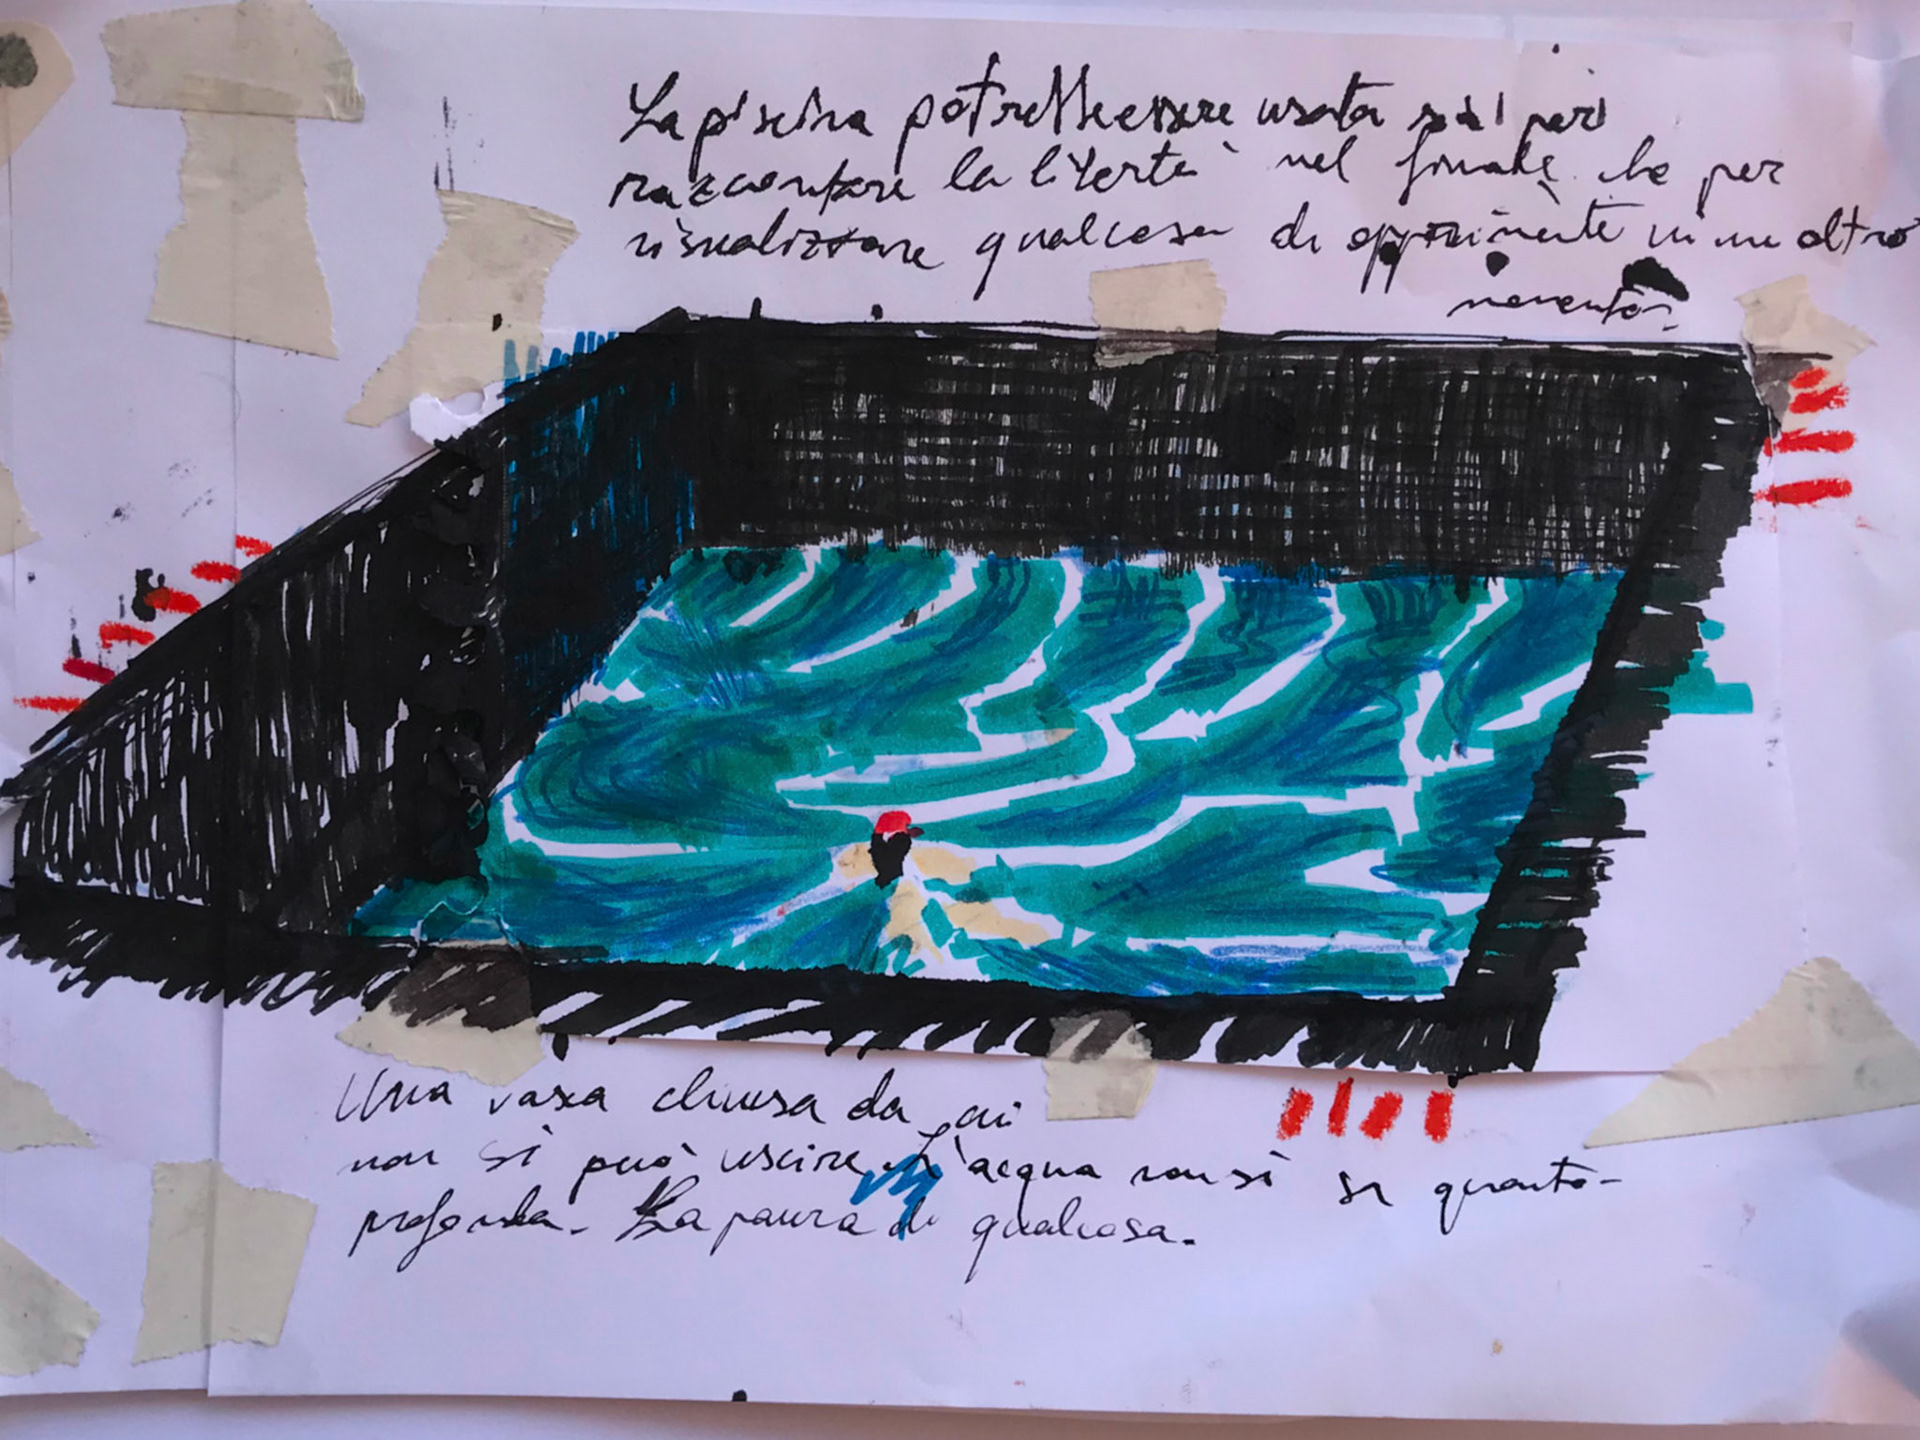 La piscina potrebbe essere usata sia per
raccontare la libertà nel finale che per
visualizzare qualcosa di opprimente in un altro
momento.
Una vasca chiusa da cui
non si può uscire. L'acqua non si sa quanto
profonda. La paura di qualcosa.